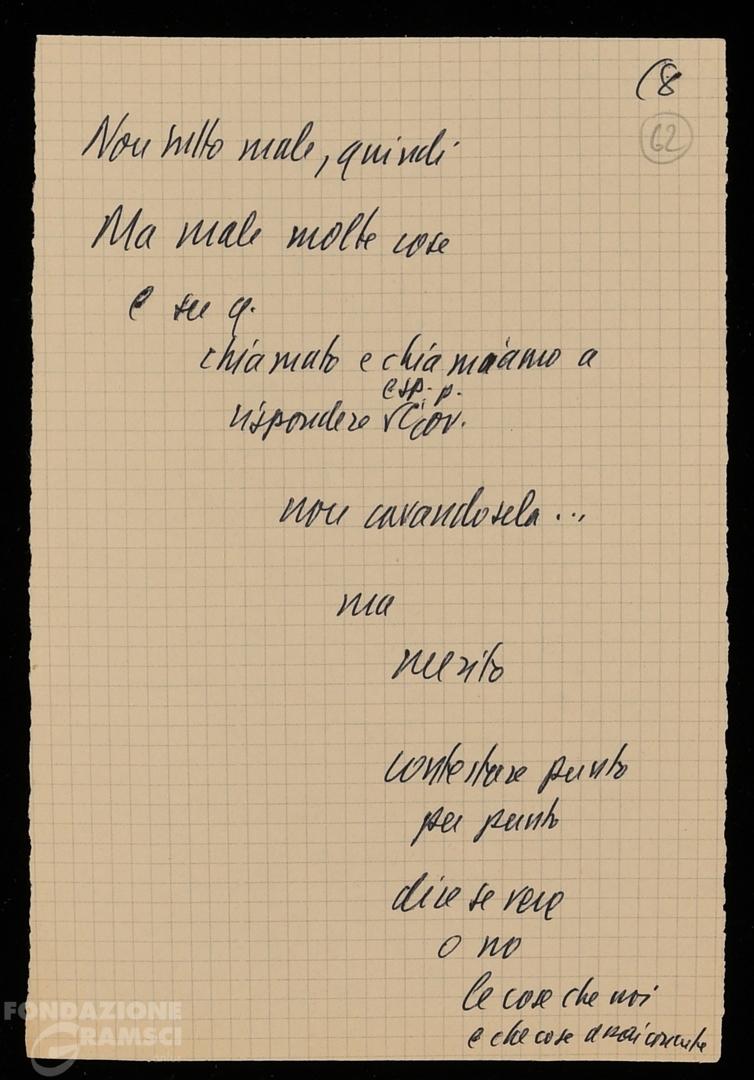 (8
62
Non tutto male, quindi
Ma male molte cose
e su q.
chiamato e chiamiamo a
esp. p.
rispondere
non cavandosela...
ma
merito
contestare punto
per punto
dire se vere
o no
le cose che noi
e che cose
FONDAZIONE
GRAMSCI